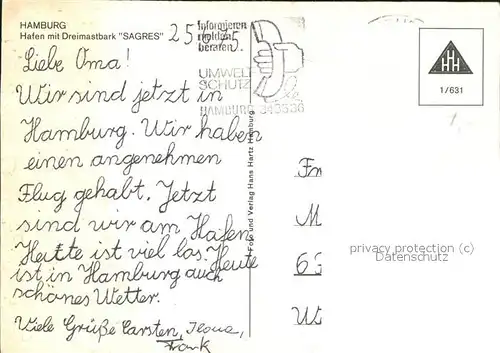 HAMBURG
Hafen mit Dreimastbark "SAGRES"
Informieren
melden
beraten.
UMWELT
SCHUTZ
HAMBURG 343536
Liebe Oma!
Wir sind jetzt in
Hamburg. Wir haben
einen angenehmen
Flug gehabt. Jetzt
sind wir am Hafen.
Heute ist viel los. Heute
ist in Hamburg auch
schönes Wetter.
Viele Grüße Carsten, Ilona,
Frank
Foto und Verlag Hans Hartz Hamburg
HH
1/631
privacy protection (c)
Datenschutz